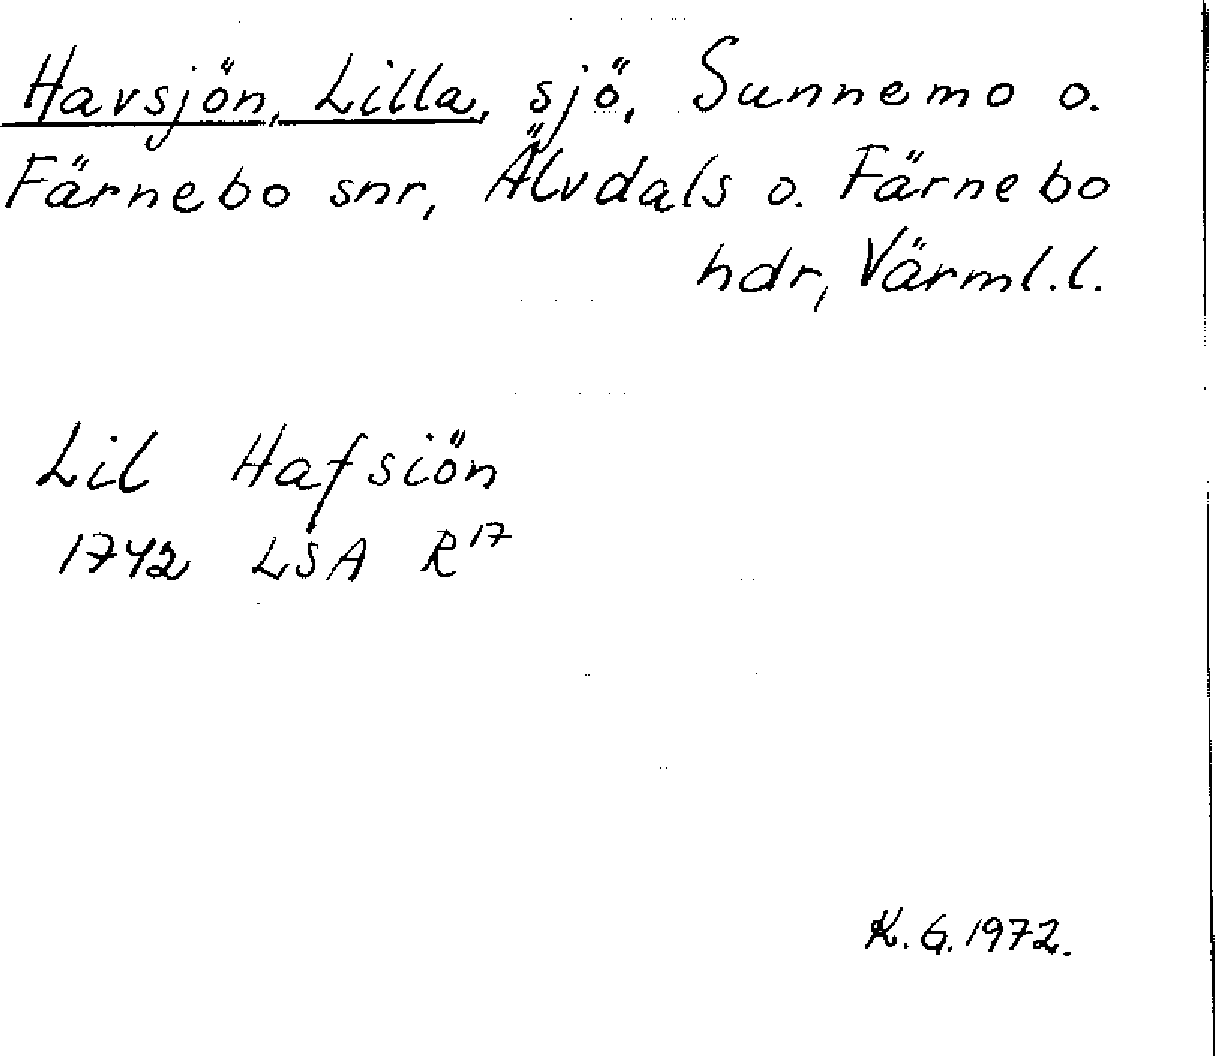 Havsjön, Lilla, sjö, Sunnemo o.
Färnebo snr, Älvdals o. Färnebo
hdr, Värml.l.
Lil Hafsiön
1742 LSA R¹⁷
K. G. 1972.